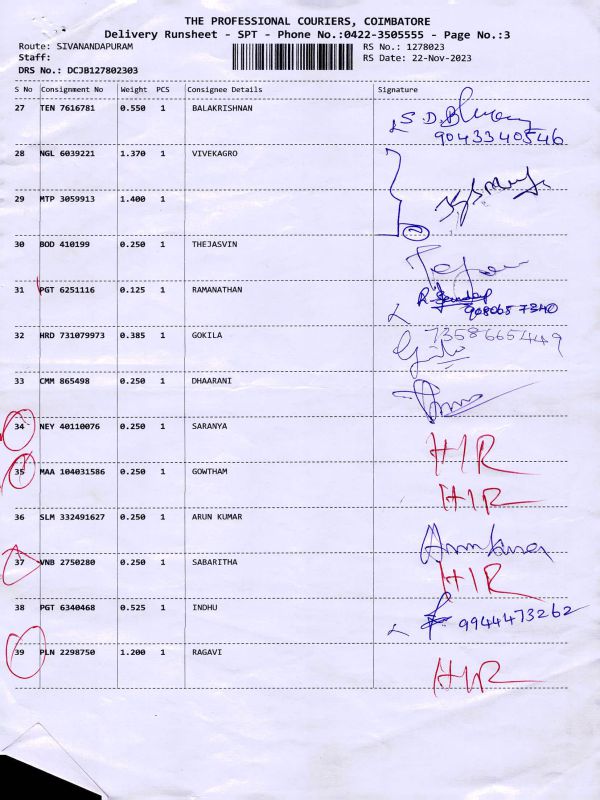 THE PROFESSIONAL COURIERS, COIMBATORE
Delivery Runsheet - SPT - Phone No.:0422-3505555 - Page No.:3
Route: SIVANANDAPURAM RS No.: 1278023
Staff: RS Date: 22-Nov-2023
DRS No.: DCJB127802303
S No Consignment No Weight PCS Consignee Details Signature
27 TEN 7616781 0.550 1 BALAKRISHNAN
9043340546
28 NGL 6039221 1.370 1 VIVEKAGRO
29 MTP 3059913 1.400 1
30 BOD 410199 0.250 1 THEJASVIN
31 PGT 6251116 0.125 1 RAMANATHAN
9080657340
32 HRD 731079973 0.385 1 GOKILA 7358665449
33 CMM 865498 0.250 1 DHAARANI
34 NEY 40110076 0.250 1 SARANYA HIR
35 MAA 104031586 0.250 1 GOWTHAM HIR
36 SLM 332491627 0.250 1 ARUN KUMAR
37 VNB 2750280 0.250 1 SABARITHA HIR
38 PGT 6340468 0.525 1 INDHU 9944473262
39 PLN 2298750 1.200 1 RAGAVI HIR